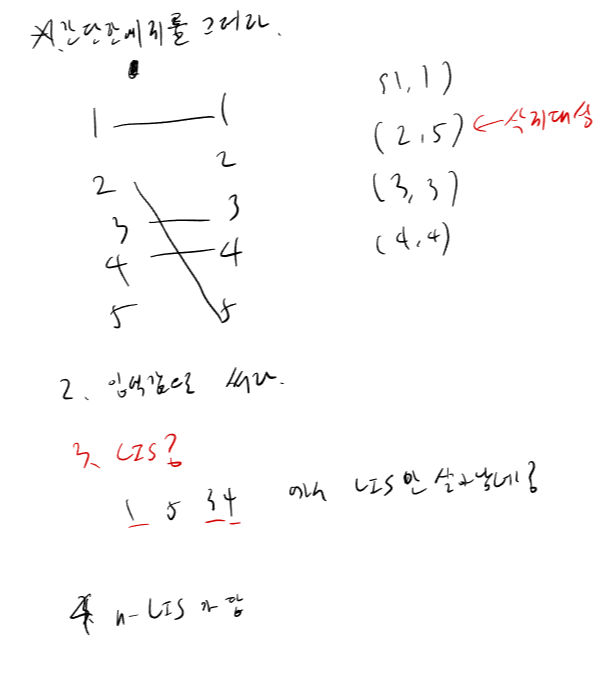 간단한 예제를 그려라.
1 1
2
2
3
3
4
4
5
5
(1, 1)
(2, 5) ← 삭제대상
(3, 3)
(4, 4)
2. 입력값으로 써라.
3. LIS?
1 5 3 4 에서 LIS만 살아남네?
4 n-LIS가 답